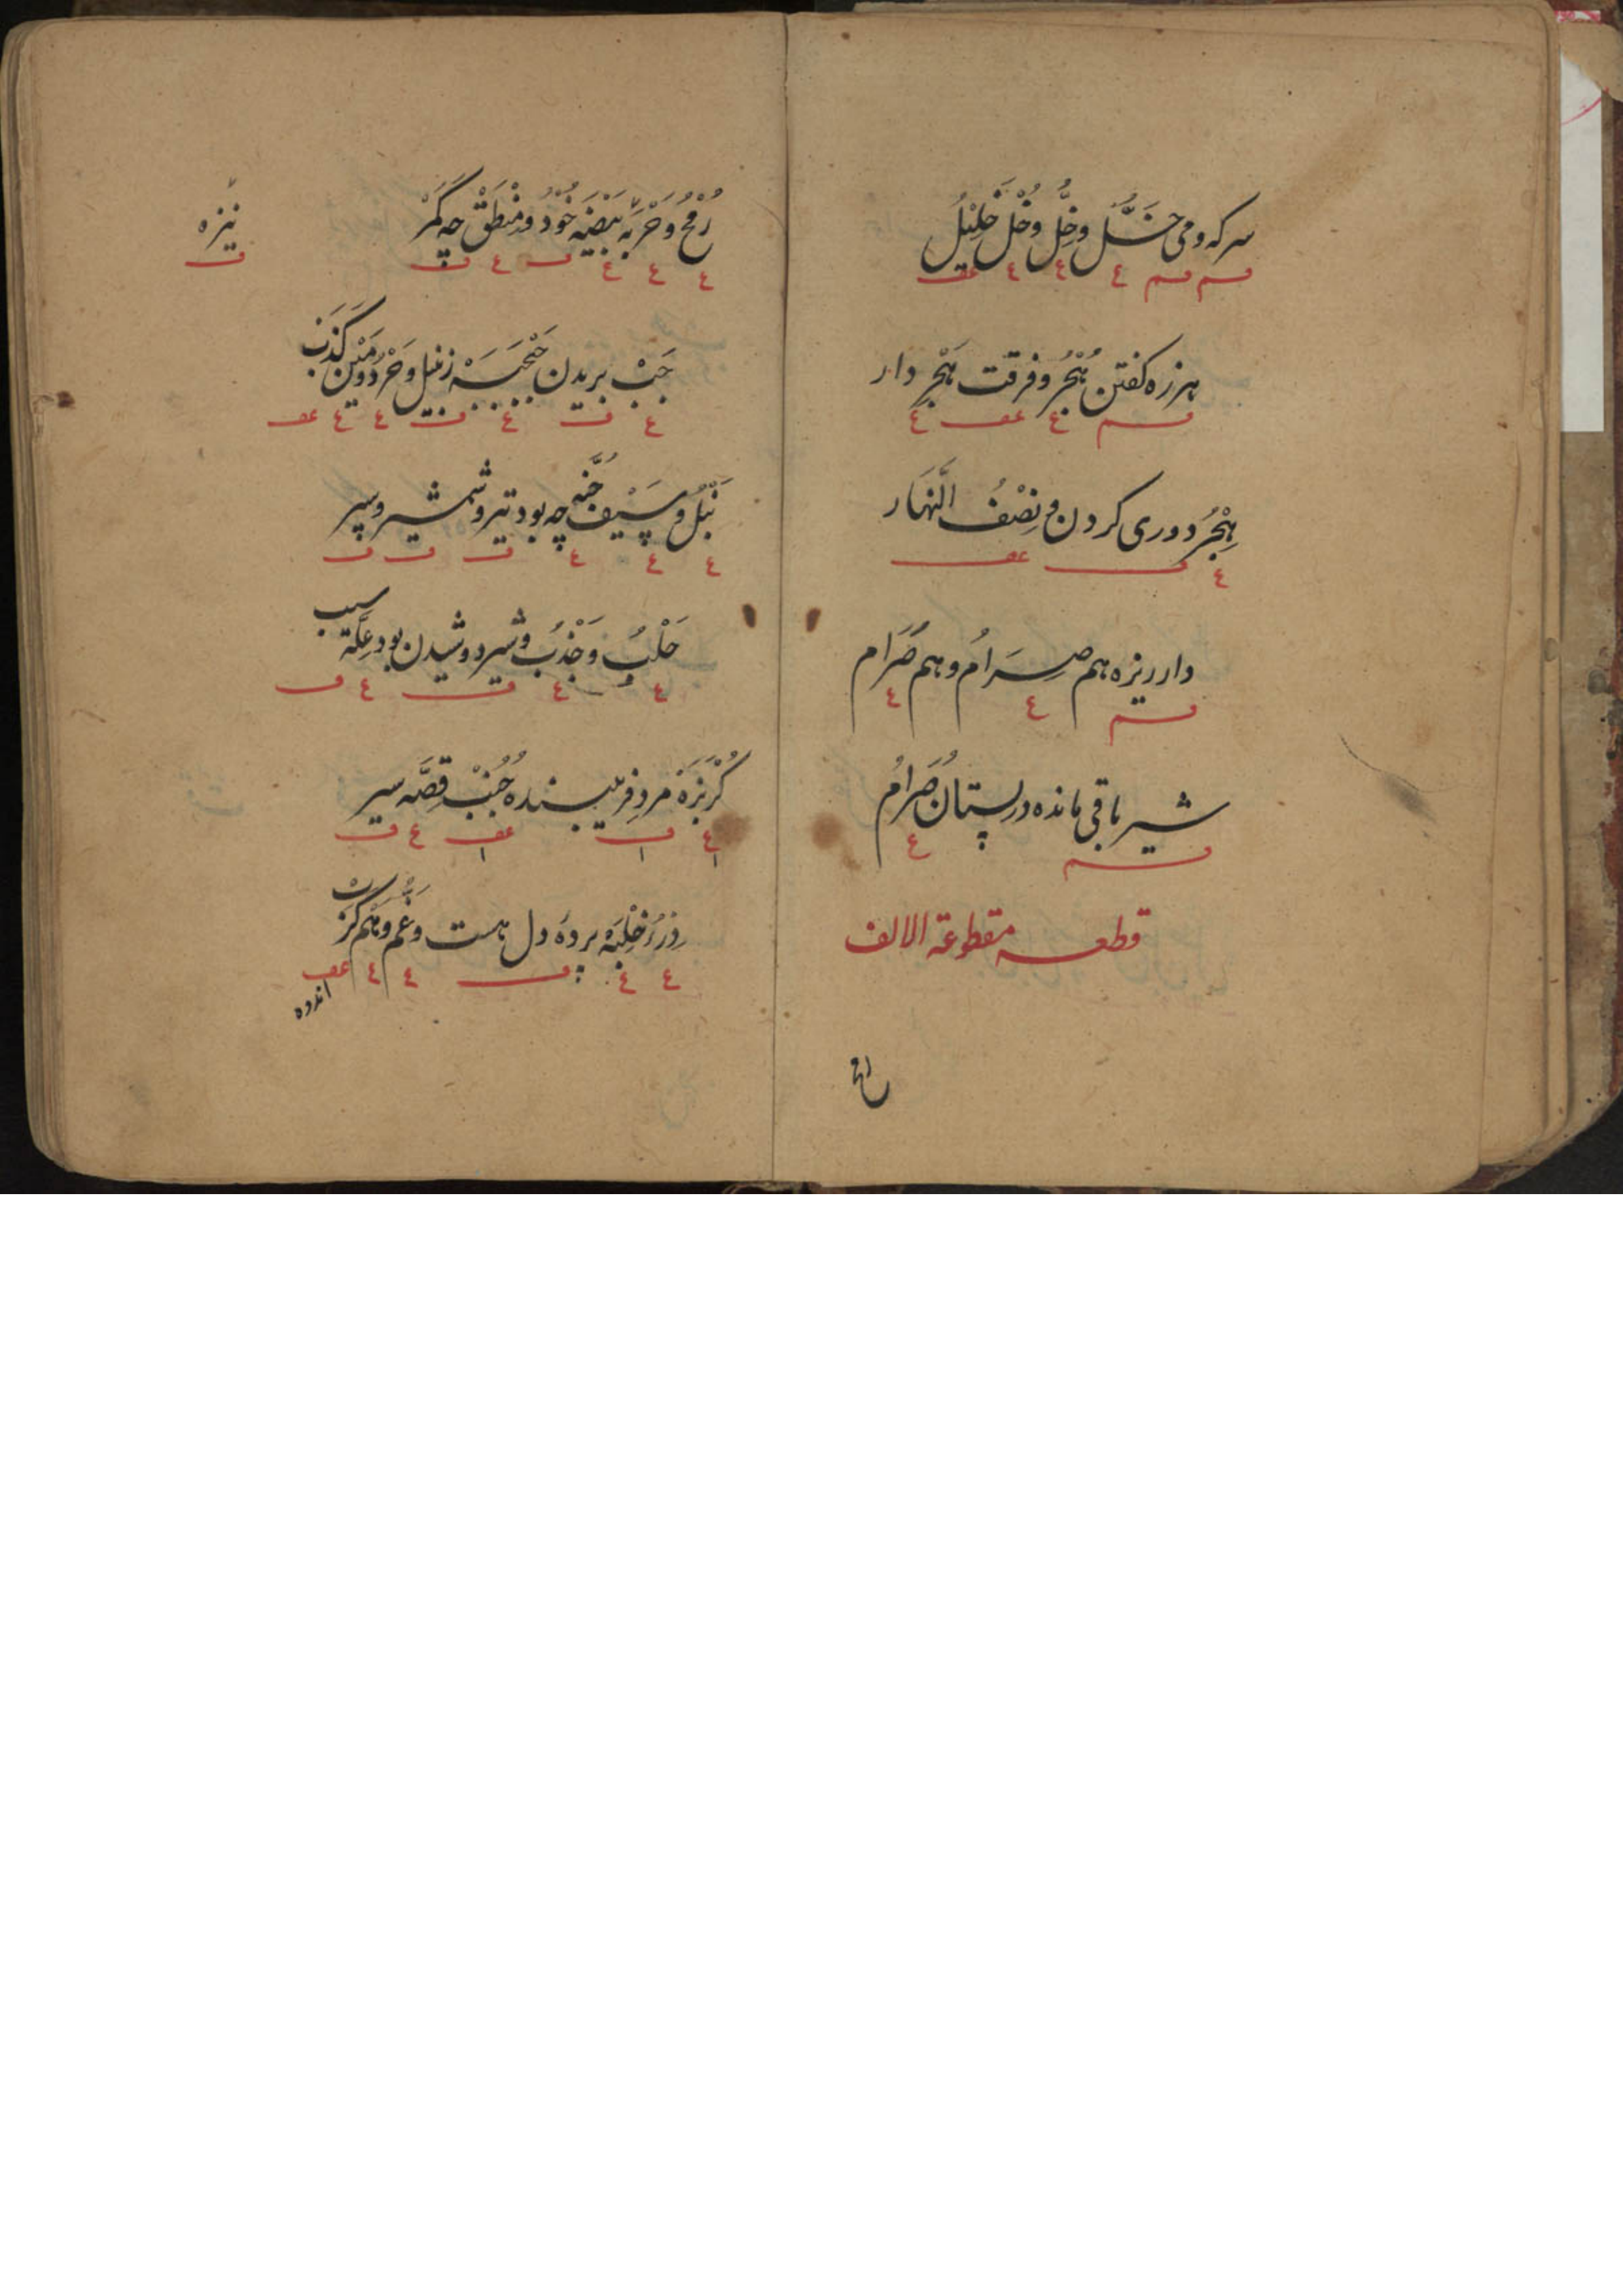 سرکه و می خَلّ و خِلّ و خُلّ خَلِیْلُ
هرزه کفتن هُجْرُ و فرقت هَجْرِ دار
هِجْرُ دوری کردن و نِصْفُ النَّهَار
دار ریزه هم صِرَامُ و هم صَرَام
شیر باقی مانده در پستان صُرَامُ
قطعه مقطوعة الالف
رُمْحُ وَ حَرْبَه بَیْضَه خُوْد و مِنْطَقْ چه کَمَرْ
نیزه
جَبْ بریدن جَبْجَبَه زنبیل وَ حَرْدُ و مَیْن کَذِبْ
نَبْلُ و سَیْف جُنَّه چه بود تیر و شمشیر و سپر
حَلْبُ وَ جَذْبُ و شیر دوشیدن بود عِلَّة سبب
کُرْبُزَه مرد فریبنده جُنُبْ قِصَّه سیر
خِلْبَه پرده دل هست و غَم و هَم کَرْبْ
اندوه